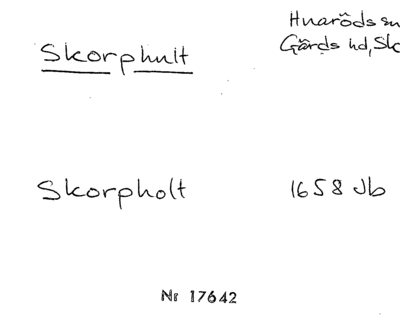 Skorphult
Huaröds sn
Gärds hd, Sk
Skorpholt
1658 Jb
Nr 17642